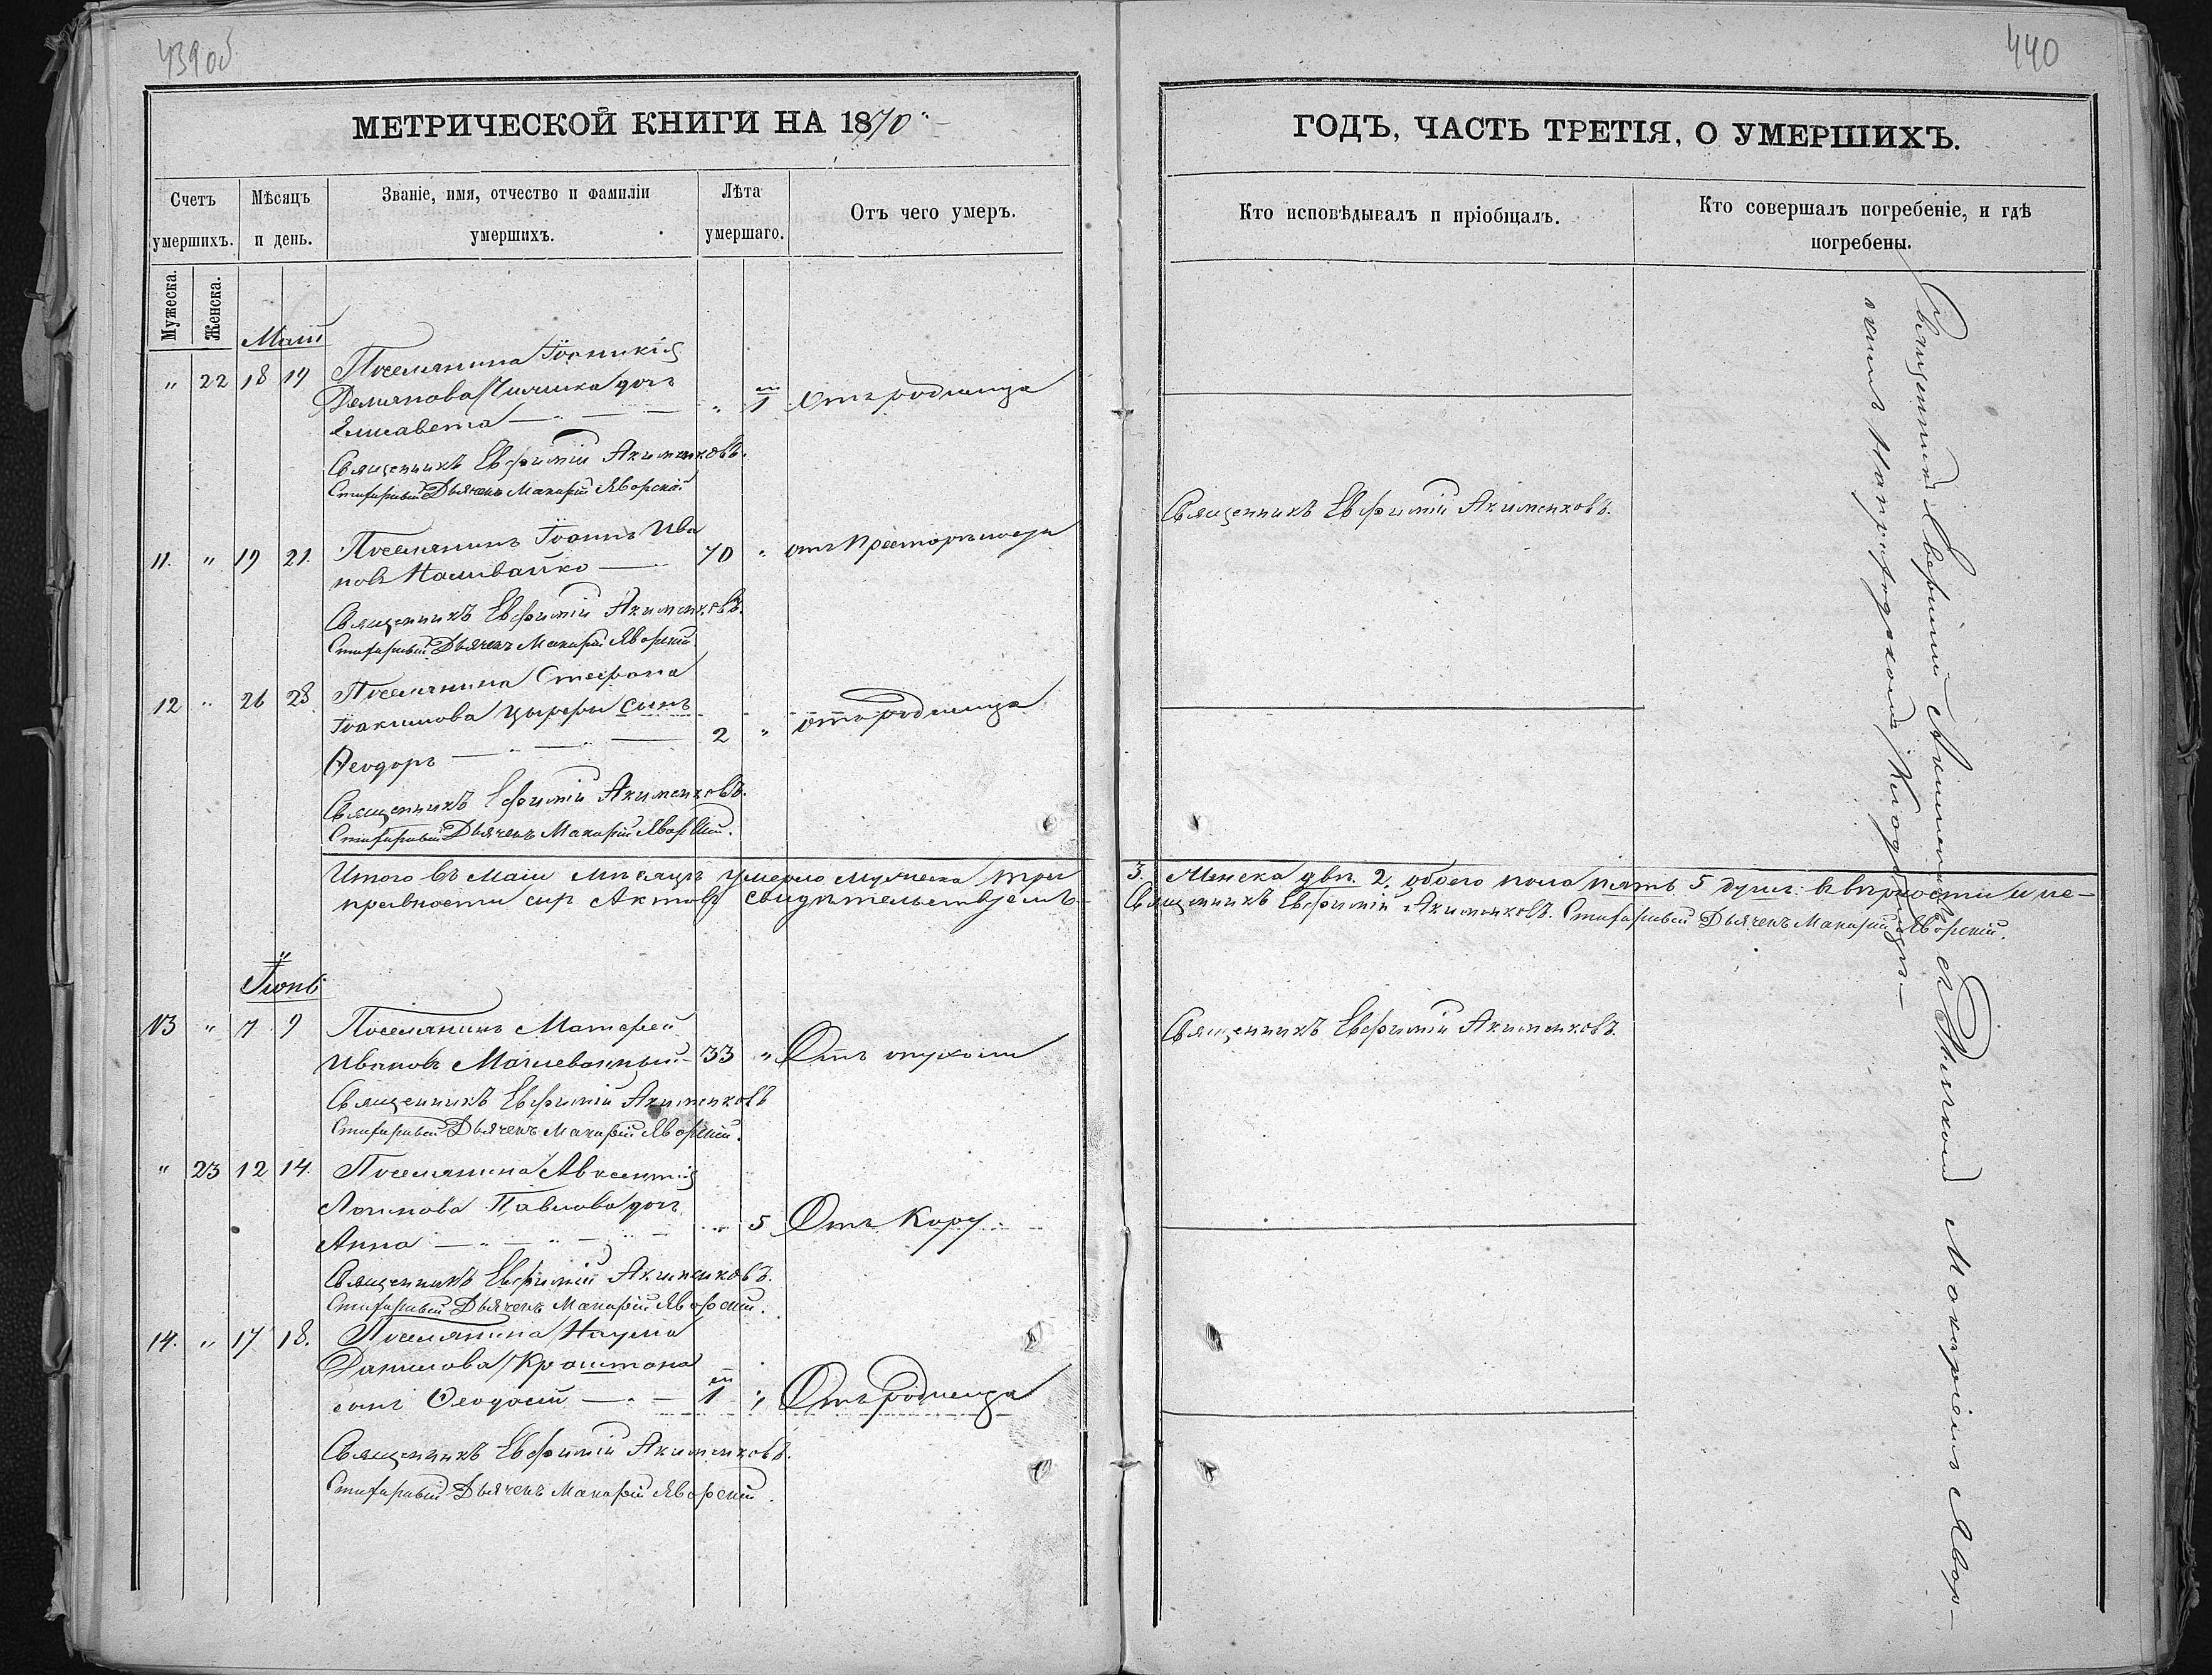 439об
МЕТРИЧЕСКОЙ КНИГИ НА 1870
Счетъ умершихъ.
Мѣсяцъ и день.
Званіе, имя, отчество и фамиліи умершихъ.
Лѣта умершаго.
Отъ чего умеръ.
Мужеска.
Женска.
Маій
" 22 18 19 Поселянина Іоанникія
Демянова дочь
Елисавета " 1 Отъ родимца
Священникъ Евфимій Акименковъ.
Стихарный Дьячекъ Макарій Яворскій
11. " 19 21. Поселянинъ Іоаннъ Ива
новъ Наливайко 70 "
Священникъ Евфимій Акименковъ.
Стихарный Дьячекъ Макарій Яворскій.
12 " 26 28. Поселянина Стефана
Іоакимова сынъ
Ѳеодоръ 2 " отъ родимца
Священникъ Евфимій Акименковъ.
Стихарный Дьячекъ Макарій Яворскій.
Итого въ Маіи мѣсяцѣ умерло мужеска три
правности сихъ Актовъ свидѣтельствуемъ
Іюнь
13 " 7 9 Поселянинъ Матфей
Ивановъ 33 " Отъ опухоли
Священникъ Евфимій Акименковъ
Стихарный Дьячекъ Макарій Яворскій.
" 23 12 14. Поселянина Авксентія
Павлова дочь
Анна " 5 Отъ Кору
Священникъ Евфимій Акименковъ.
Стихарный Дьячекъ Макарій Яворскій.
14. " 17 18. Поселянина Наума
Данилова
сынъ Ѳеодосій 1 " Отъ родимца
Священникъ Евфимій Акименковъ.
Стихарный Дьячекъ Макарій Яворскій.
440
ГОДЪ, ЧАСТЬ ТРЕТІЯ, О УМЕРШИХЪ.
Кто исповѣдывалъ и пріобщалъ.
Кто совершалъ погребеніе, и гдѣ
погребены.
Священникъ Евфимій Акименковъ.
3. Женска двѣ 2. обоего пола пять 5 душъ: въ вѣрности и не-
Священникъ Евфимій Акименковъ. Стихарный Дьячекъ Макарій Яворскій.
Священникъ Евфимій Акименковъ.
Священникъ Евфимій Акименковъ съ Дьячкомъ Макаріемъ Явор-
скимъ на приходскомъ Кладбищѣ